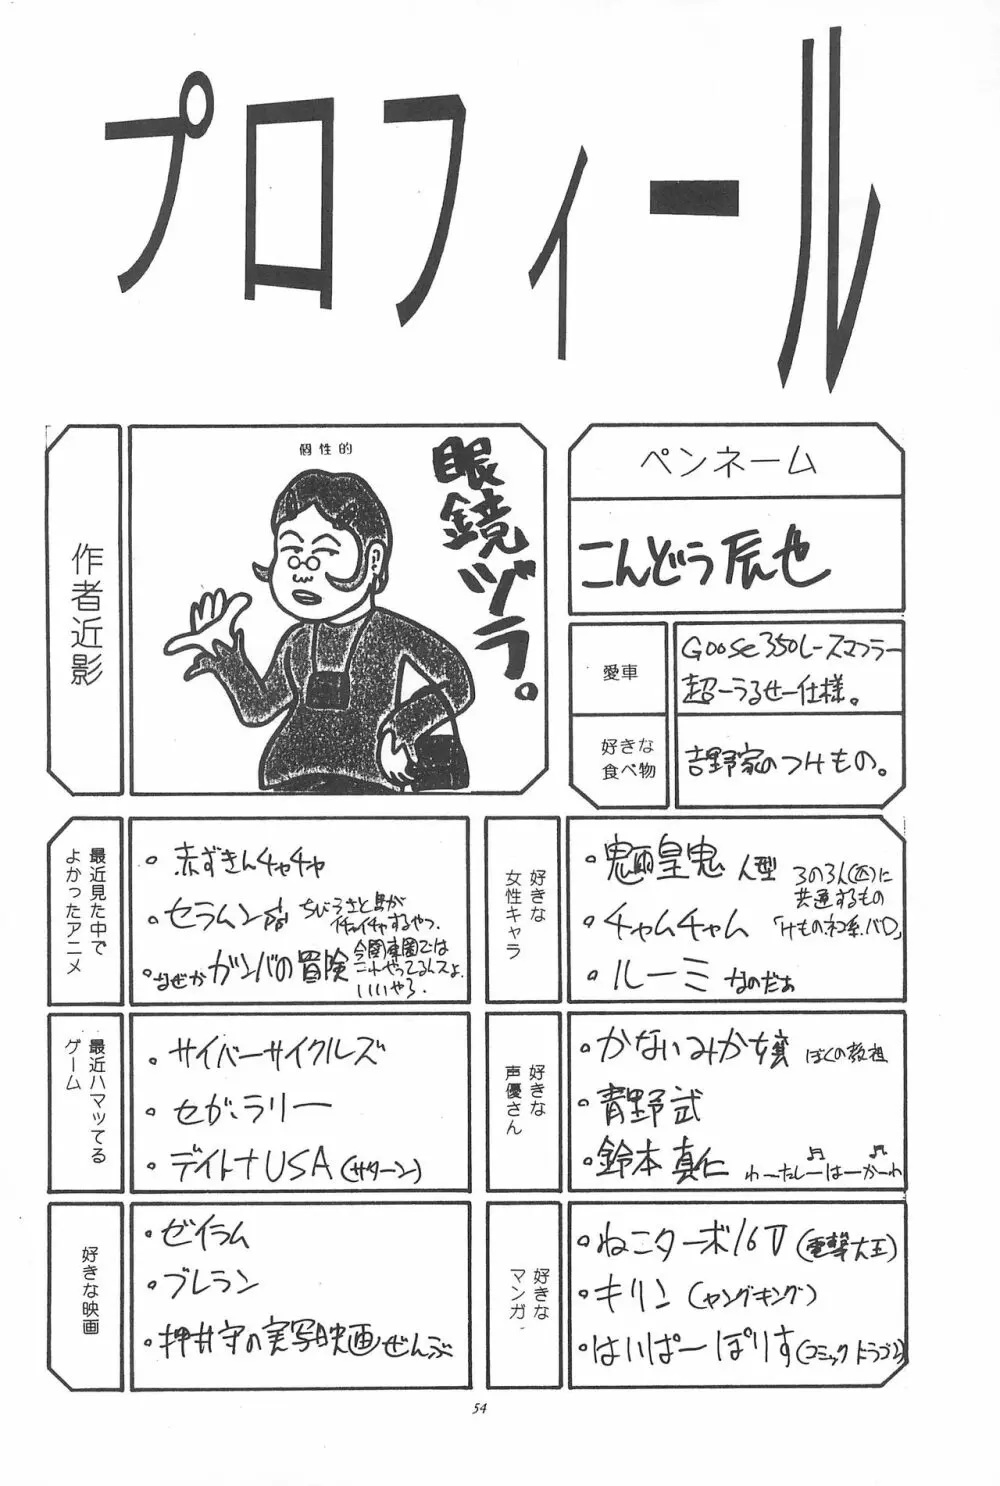 プロフィール
作者近影
個性的
眼鏡ヅラ。
ペンネーム
こんどう辰也
愛車
Goose350レースマフラー
超ーうるせー仕様。
好きな
食べ物
吉野家のつけもの。
最近見た中で
よかったアニメ
・赤ずきんチャチャ
・セラムン
ちびうさと馬が
イチャイチャするやつ。
・なぜかガンバの冒険
今関東圏では
これやってるんスよ。
いいやろ。
好きな
女性キャラ
・魍皇鬼 人型
3の3人(匹)に
共通するもの
・チャムチャム
「けものネコ系バロ」
・ルーミ なのだぁ
最近ハマッてる
ゲーム
・サイバーサイクルズ
・セガ・ラリー
・デイトナUSA(サターン)
好きな
声優さん
・かないみか嬢 ぼくの教祖
・青野武
・鈴木真仁 わーたしーはーかーわ
好きな映画
・ゼイラム
・ブレラン
・押井守の実写映画ぜんぶ
好きな
マンガ
・ねこターボ16V(電撃大王)
・キリン(ヤングキング)
・はいぱーぽりす(コミックドラゴン)
54